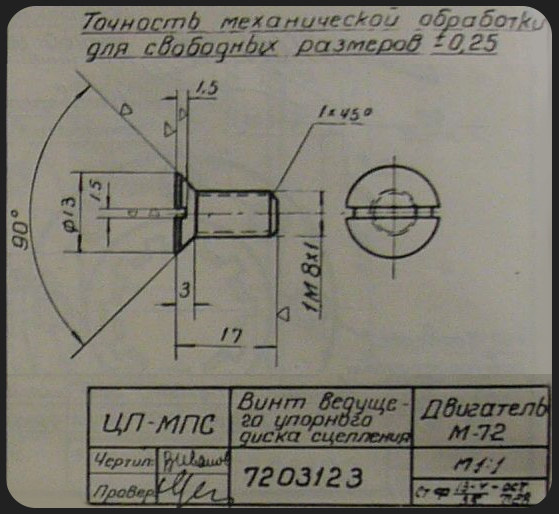 Точность механической обработки
для свободных размеров ±0,25
1.5
1×45°
90°
ф13
1.5
3
17
1М8×1
ЦП-МПС
Винт ведуще-
го упорного
диска сцепления
Двигатель
М-72
Чертил:
Провер.
7203123
М 1:1